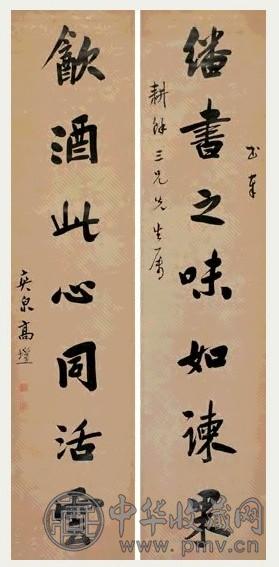 書奉
繙書之味如諫果
耕餘三兄先生屬
飲酒此心同活雲
爽泉高塏
中华收藏网
www.pmv.cn